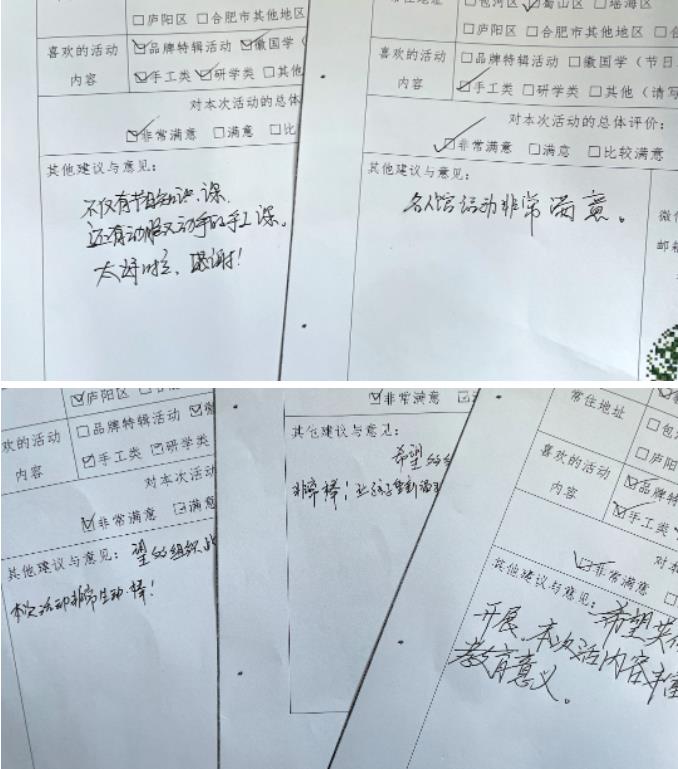 □庐阳区 □合肥市其他地区
喜欢的活动
内容
☑品牌特辑活动 ☑徽国学（
☑手工类 ☑研学类 □其他
对本次活动的总体
☑非常满意 □满意 □比
其他建议与意见：
不仅有节日知识课
还有动脑又动手的手工课。
太好啦、感谢！
常住地址
□包河区 ☑蜀山区 □瑶海区
□庐阳区 □合肥市其他地区 □
喜欢的活动
内容
□品牌特辑活动 □徽国学（节日
☑手工类 □研学类 □其他（请写
对本次活动的总体评价：
☑非常满意 □满意 □比较满意
其他建议与意见：
活动非常满意。
微信
邮箱
☑庐阳区
欢的活动
内容
□品牌特辑活动 ☑徽
☑手工类 ☑研学类
对本次活动
☑非常满意 ☑满意
其他建议与意见：
本次活动非常生动·棒！
☑非常满意
其他建议与意见：
希望
非常棒！
常住地址
□包
□庐阳
喜欢的活动
内容
☑品牌特
☑手工类
对本
☑非常满意
其他建议与意见：
希望英
开展、本次活内容丰富
教育意义。